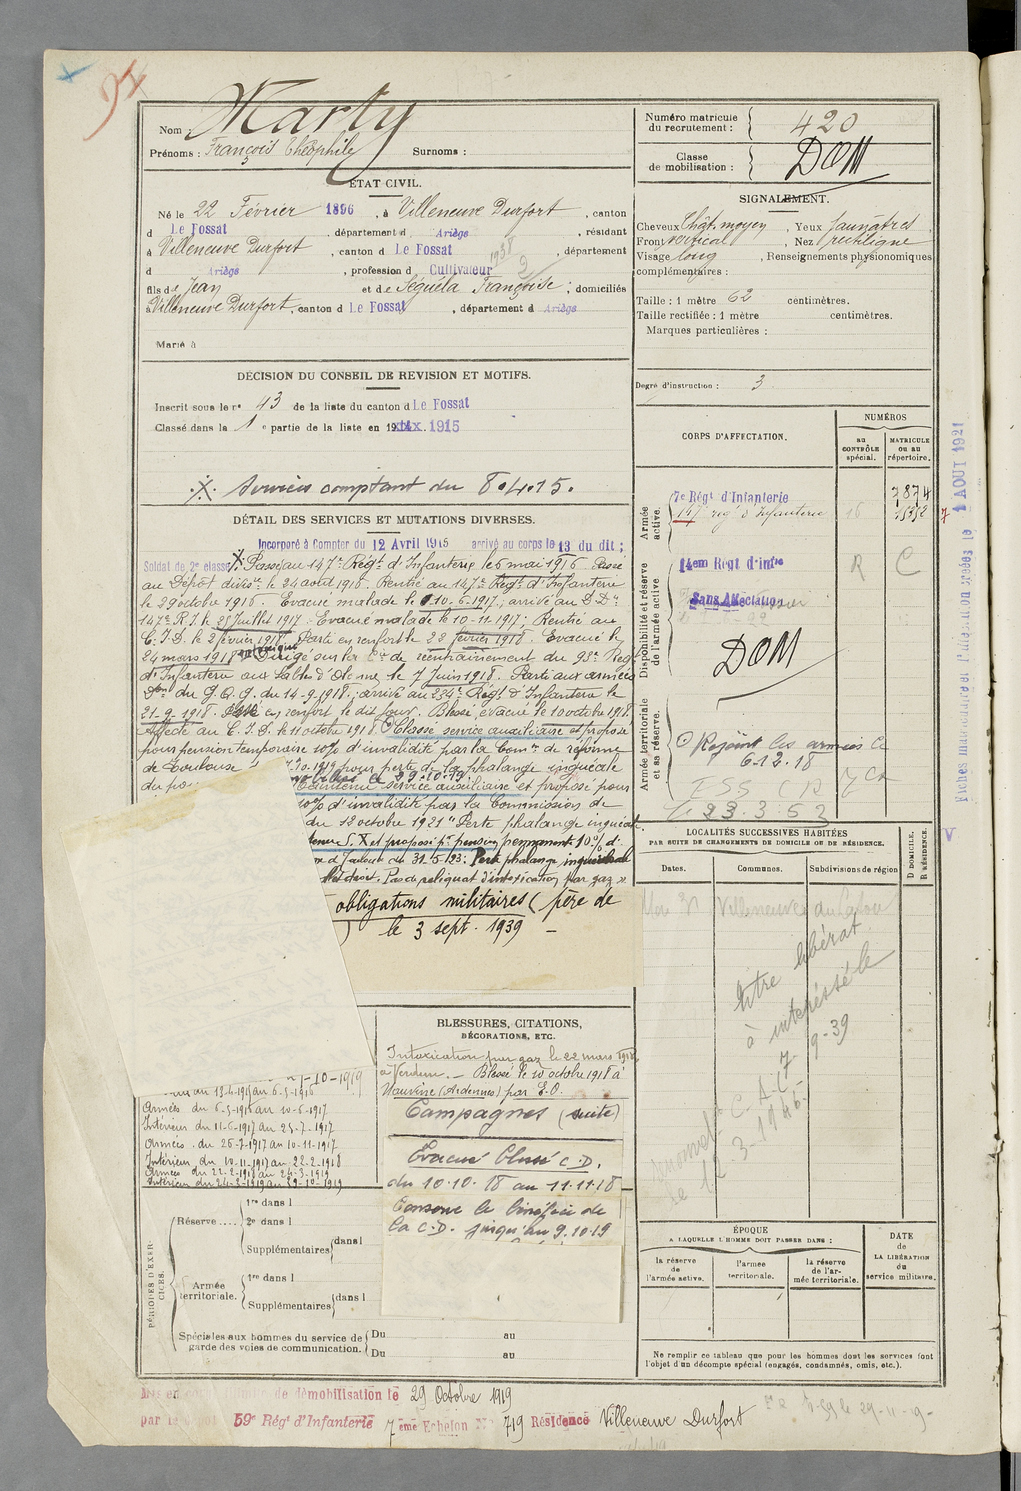 94
Nom : Marty
Prénoms : François Théophile Surnoms :
Numéro matricule du recrutement : 420
Classe de mobilisation : DOM
ÉTAT CIVIL.
Né le 22 Février 1896, à Villeneuve Durfort, canton
d Le Fossat, département d Ariège, résidant
à Villeneuve Durfort, canton d Le Fossat, département
d Ariège, profession d Cultivateur
fils de Jean et de Séguéla Françoise ; domiciliés
à Villeneuve Durfort, canton d Le Fossat, département d Ariège
Marié à
SIGNALEMENT.
Cheveux Chât. moyen, Yeux jaunâtres,
Front vertical, Nez rectiligne
Visage long, Renseignements physionomiques
complémentaires :
Taille : 1 mètre 62 centimètres.
Taille rectifiée : 1 mètre centimètres.
Marques particulières :
Degré d'instruction : 3
DÉCISION DU CONSEIL DE REVISION ET MOTIFS.
Inscrit sous le n° 43 de la liste du canton d Le Fossat
Classé dans la 1e partie de la liste en 1915
Services comptant du 8.4.15.
DÉTAIL DES SERVICES ET MUTATIONS DIVERSES.
Incorporé à Compter du 12 Avril 1915 arrivé au corps le 13 du dit ;
Soldat de 2e classe. Passé au 147e Régt d'Infanterie le 6 mai 1916. Passé
au Dépôt divre le 24 août 1916. Rentré au 147e Régt d'Infanterie
le 29 octobre 1916. Evacué malade le 10-6-1917, arrivé au D.D.
147e R.I. le 25 Juillet 1917. Evacué malade le 10-11-1917 ; Rentré au
C.I.D. le 2 février 1918. Parti en renfort le 22 février 1918. Evacué le
24 mars 1918. Dirigé sur la Cie de réentrainement du 93e Régt
d'Infanterie aux Sables d'Olonne le 7 Juin 1918. Parti aux armées
du G.A.G. du 14-9-1918 ; arrivé au 234e Régt d'Infanterie le
21-9-1918. Passé en renfort le dit jour. Blessé, évacué le 10 octobre 1918.
Affecté au C.I.D. le 11 octobre 1918. Classé service auxiliaire et proposé
pour pension temporaire 10% d'invalidité par la Comon de réforme
de Toulouse 7.10.1919 pour perte de la phalange unguéale
du po
le 29.10.19
Maintenu service auxiliaire et proposé pour
10% d'invalidité par la Commission de
du 12 octobre 1921 "Perte phalange unguéale
tenu S.X et proposé pr pension permanente 10% d.
de Toulouse du 31.5.23. Perte phalange unguéale
droit. Pas de reliquat d'intoxication par gaz »
obligations militaires (père de
) le 3 sept. 1939 —
CORPS D'AFFECTATION.
NUMÉROS
au CONTRÔLE spécial.
MATRICULE OU AU répertoire.
Armée active.
7e Régt d'Infanterie 7874
147e régt d'Infanterie 16
Disponibilité et réserve de l'armée active
14em Régt d'infie R C
Sans Affectation
DOM
Armée territoriale et sa réserve.
Rejoint les armées le
6.12.18
Fiches matricules
1 AOUT 1921
LOCALITÉS SUCCESSIVES HABITÉES
PAR SUITE DE CHANGEMENTS DE DOMICILE OU DE RÉSIDENCE.
Dates. Communes. Subdivisions de région
D DOMICILE. R RÉSIDENCE.
Villeneuve du Latou
titre libérat.
à intéressé le
7-9-39
C.A.C.
le 12-3-1946
BLESSURES, CITATIONS,
DÉCORATIONS, ETC.
Intoxication par gaz le 22 mars 1918
à Verdun. — Blessé le 10 octobre 1918 à
(Ardennes) par E.O.
Campagnes (suite)
Evacué blessé C.D.
du 10.10.18 au 11.11.18 —
Conserve le bénéfice de
la C.D. jusqu'au 9.10.19
-10-1919
Armées du 6-5-1916 au 10-6-1917
Intérieur du 11-6-1917 au 25-7-1917
Armées du 26-7-1917 au 10-11-1917
Intérieur du 10-11-1917 au 22-2-1918
Armées du 22-2-1918 au 24-3-1919
Intérieur du 24-3-1919 au 29-10-1919
PÉRIODES D'EXERCICES.
Réserve....
1re dans l
2e dans l
Supplémentaires dans l
Armée territoriale.
1re dans l
Supplémentaires dans l
Spéciales aux hommes du service de garde des voies de communication.
Du au
Du au
ÉPOQUE
A LAQUELLE L'HOMME DOIT PASSER DANS :
la réserve de l'armée active.
l'armée territoriale.
la réserve de l'armée territoriale.
DATE de LA LIBÉRATION du service militaire.
Ne remplir ce tableau que pour les hommes dont les services font
l'objet d'un décompte spécial (engagés, condamnés, omis, etc.).
Mis en congé illimité de démobilisation le 29 Octobre 1919
par le Dépôt 59e Régt d'Infanterie 7ème Echelon N° 719 Résidence Villeneuve Durfort